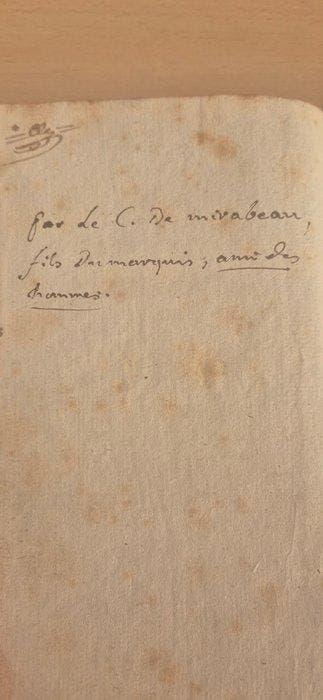 par Le C. De mirabeau,
fils Du marquis, ami des
hommes.